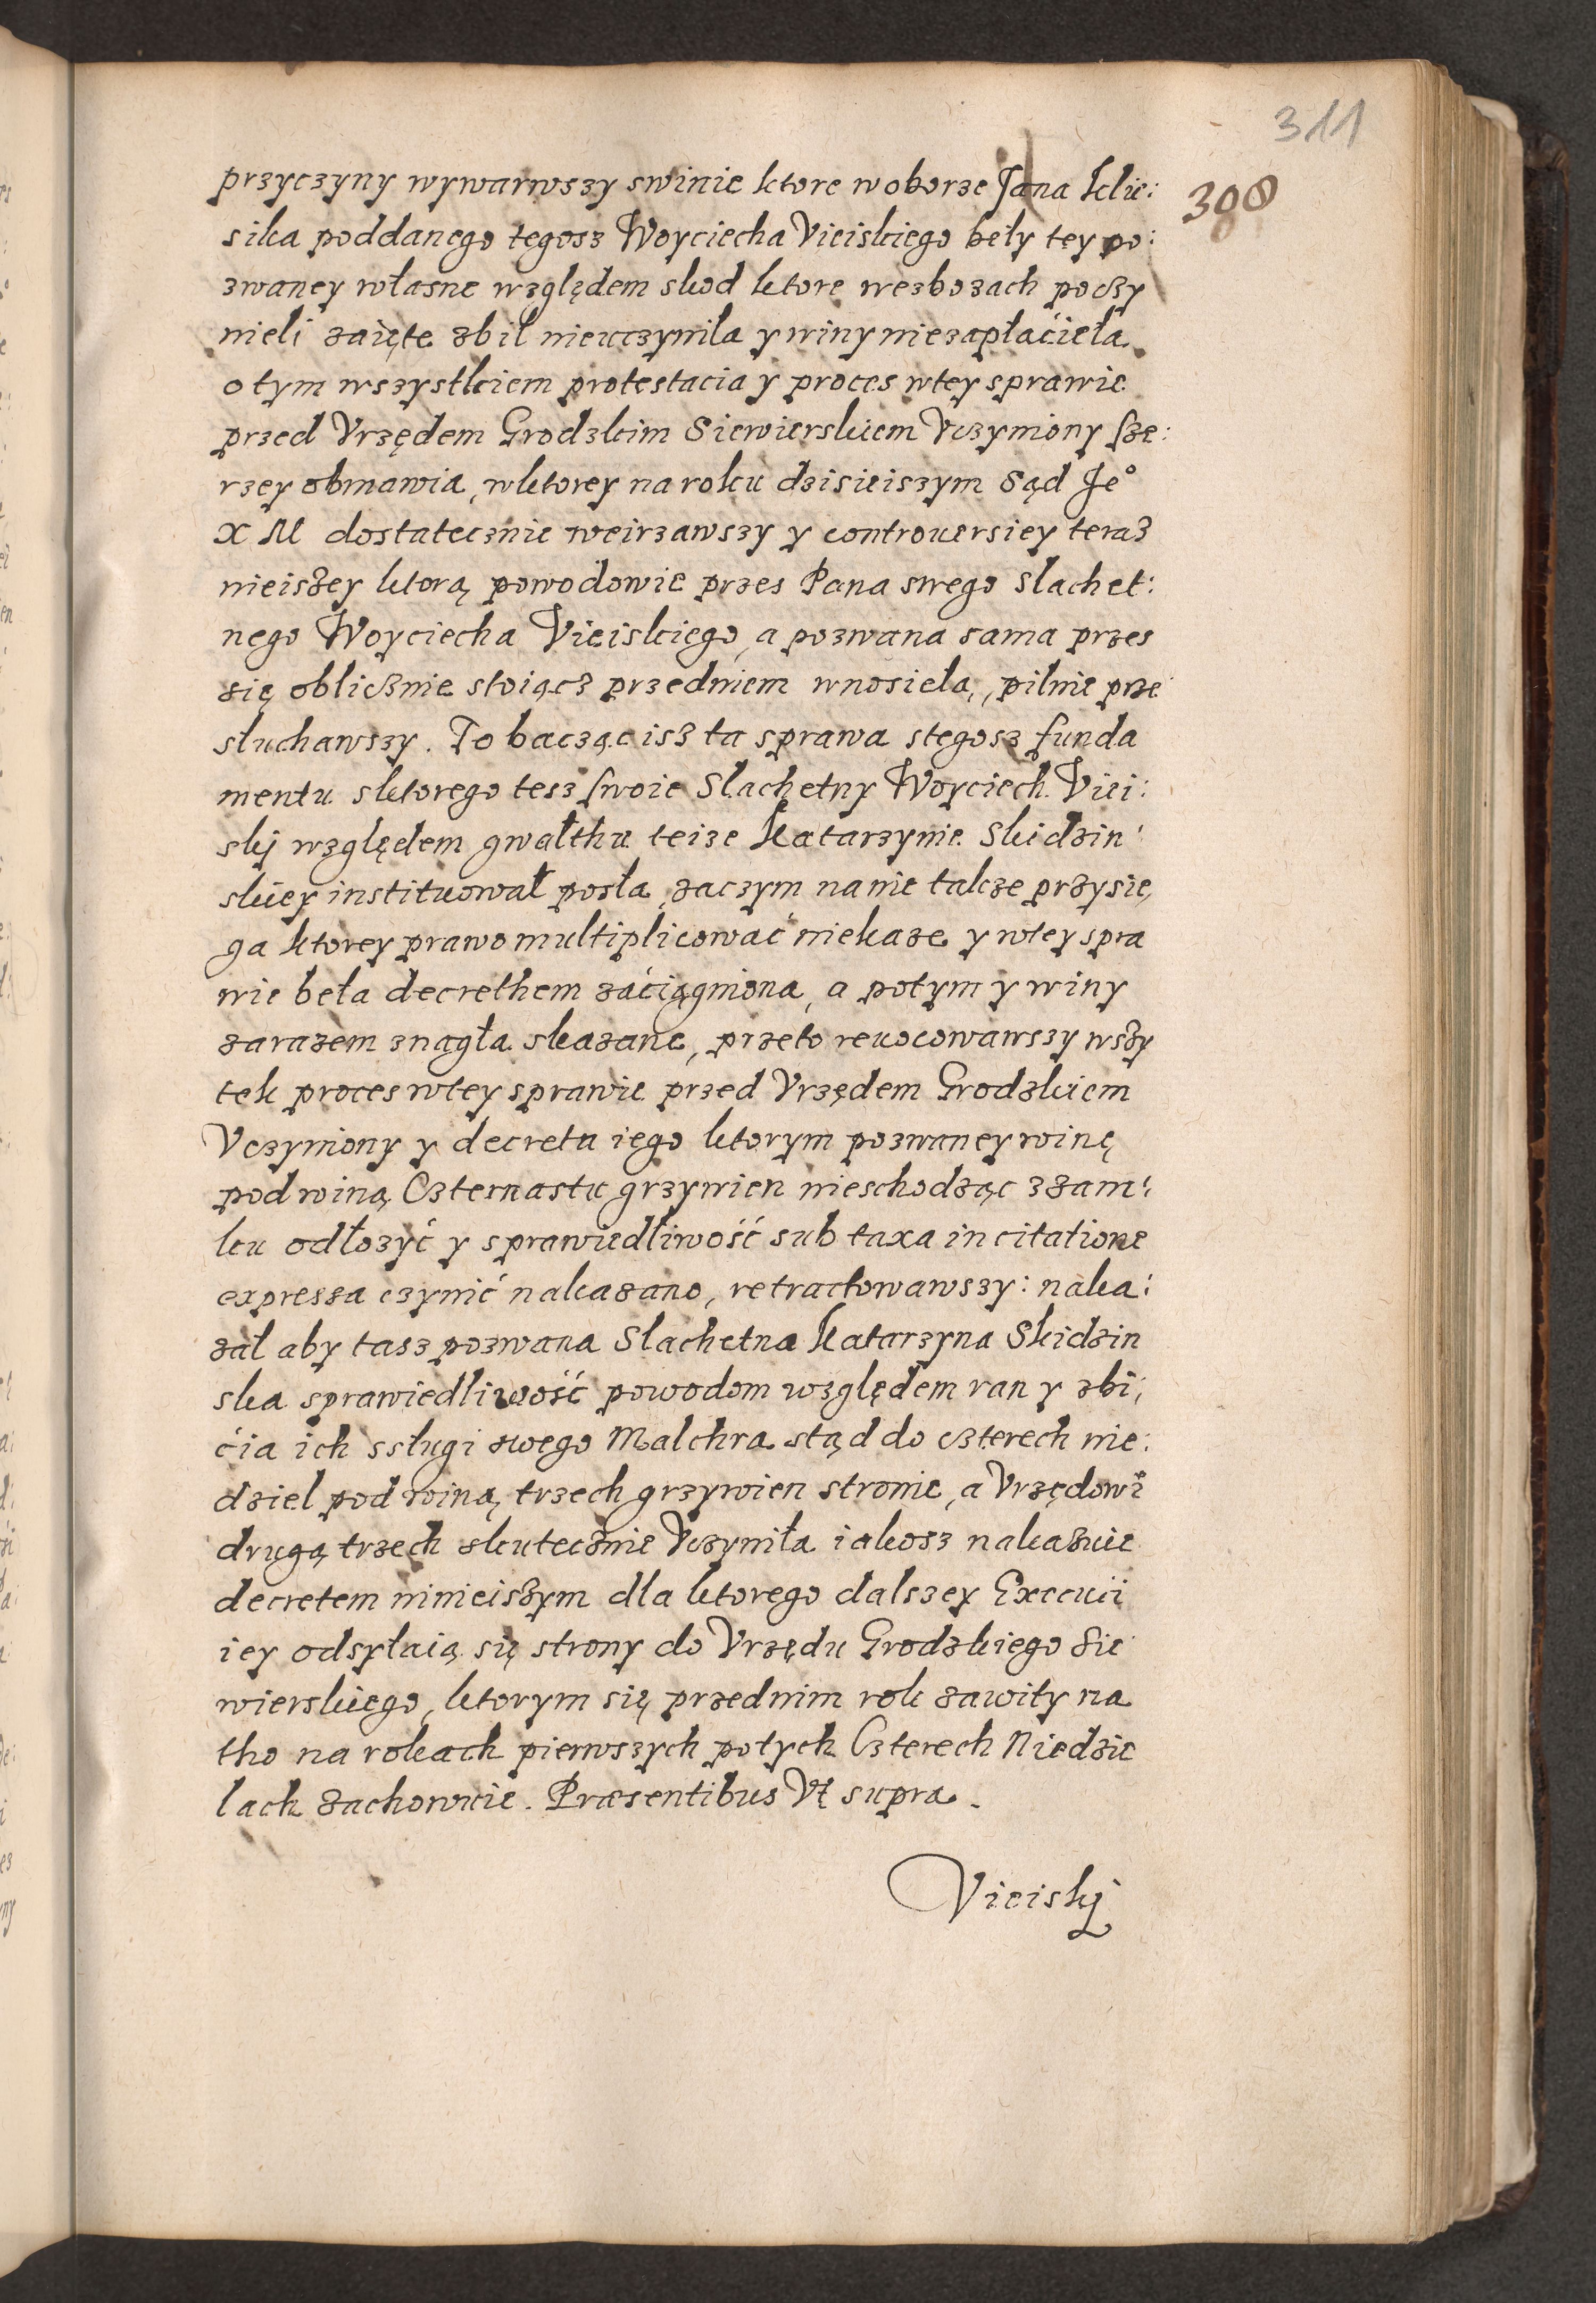 311
308
przyczyny wywarwszy swinie ktore w oborze Jana Klie:
sika poddanego tegosz Woyciecha Vieiskiego beły tey po:
zwaney własne względem skod ktore wezbozach poczy
nieli zaięte zbił nieuczyniła y winy niezapłaćieła
o tym wszystkiem protestacia y proces wtey sprawie
przed Vrzędem Grodzkim Siewierskiem Vczyniony sze:
rzey obmawia, wktorey na roku dzisieiszym Sąd Je°
X M dostatecznie weirzawszy y controuersiey teraz
nieiszey ktorą powodowie przes Pana swego Slachet:
nego Woyciecha Vieiskiego, a pozwana sama przes
się oblicznie stoiącz przedniem wnosieła, pilnie prze
słuchawszy. To bacząc isz ta sprawa stegosz funda
mentu sktorego tesz swoie Slachetny Woyciech Viei:
skj względem gwałthu teize Katarzynie Skidzin:
skiey instituował posła, zaczym na nie takze przysię
ga ktorey prawo multiplicować niekaze y wtey spra
wie beła decrethem zaćiągniona, a potym y winy
zarazem znągła skazane, przeto reuocowawszy wszy
tek proces wtey sprawie przed Vrzędem Grodzkiem
Vczyniony y decretu iego ktorym pozwaney winę
pod winą Czternastu grzywien nieschodząc z zam:
ku odłozyć y sprawiedliwość sub taxa in citatione
expressa czynić nakazano, retractowawszy: naka:
zał aby tasz pozwana Slachetna Katarzyna Skidzin
ska sprawiedliwość powodom względem ran y zbi:
ćia ich ssługi swego Malchra stąd do czterech nie:
dziel pod winą trzech grzywien stronie, a Vrzędowi
drugą trzech skutecznie Vczyniła iakosz nakazuie
decretem ninieiszym dla ktorego dalszey Execuii
iey odsyłaią się strony do Vrzędu Grodzkiego Sie
wierskiego, ktorym się przednim rok zawity na
tho na rokach pierwszych potych Czterech Niedzie
lach zachowuie. Præsentibus Vt supra.
Vieiskj